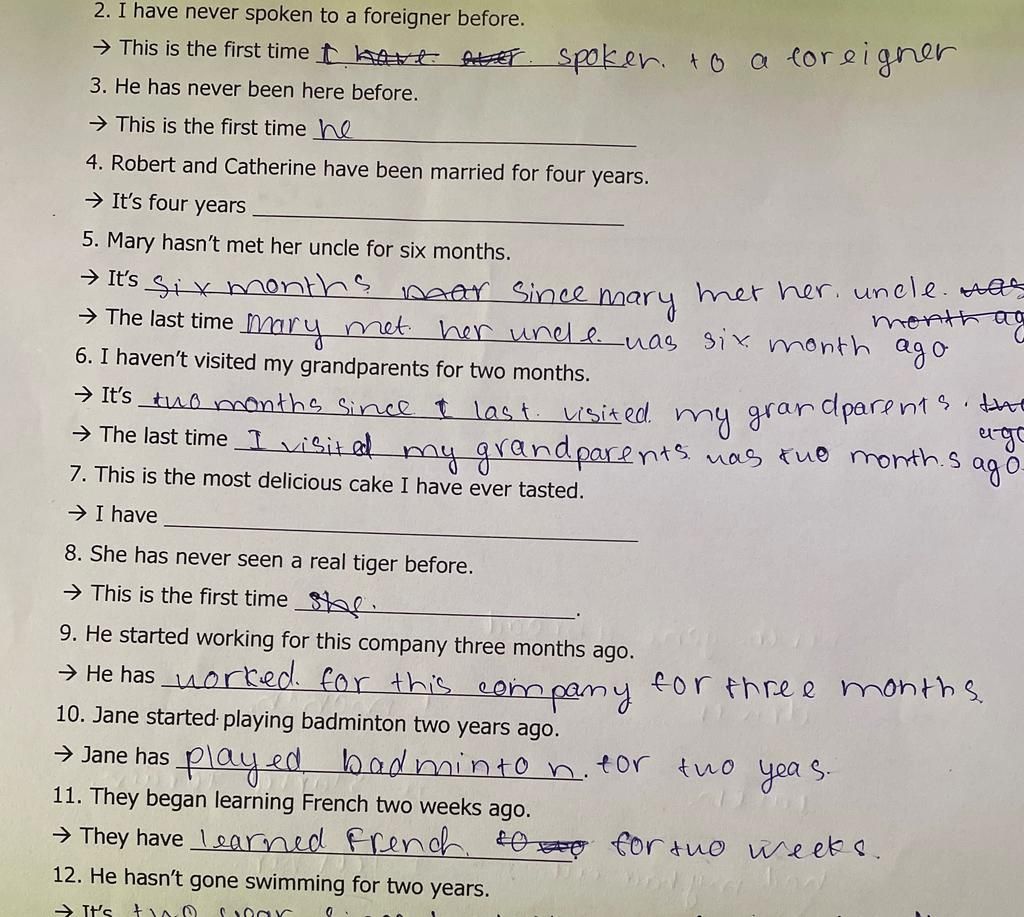 2. I have never spoken to a foreigner before.
→ This is the first time I have ever spoken. to a foreigner
3. He has never been here before.
→ This is the first time he
4. Robert and Catherine have been married for four years.
→ It's four years
5. Mary hasn't met her uncle for six months.
→ It's six months since mary met her. uncle. was
month ag
→ The last time mary met her uncle was six month ago
6. I haven't visited my grandparents for two months.
→ It's two months since I last. visited. my grandparents. two
ago
→ The last time I visited my grandparents was two months ago.
7. This is the most delicious cake I have ever tasted.
→ I have
8. She has never seen a real tiger before.
→ This is the first time she.
9. He started working for this company three months ago.
→ He has worked. for this company for three months.
10. Jane started playing badminton two years ago.
→ Jane has played badminton. for two yeas.
11. They began learning French two weeks ago.
→ They have learned French. for two weeks.
12. He hasn't gone swimming for two years.
→ It's two